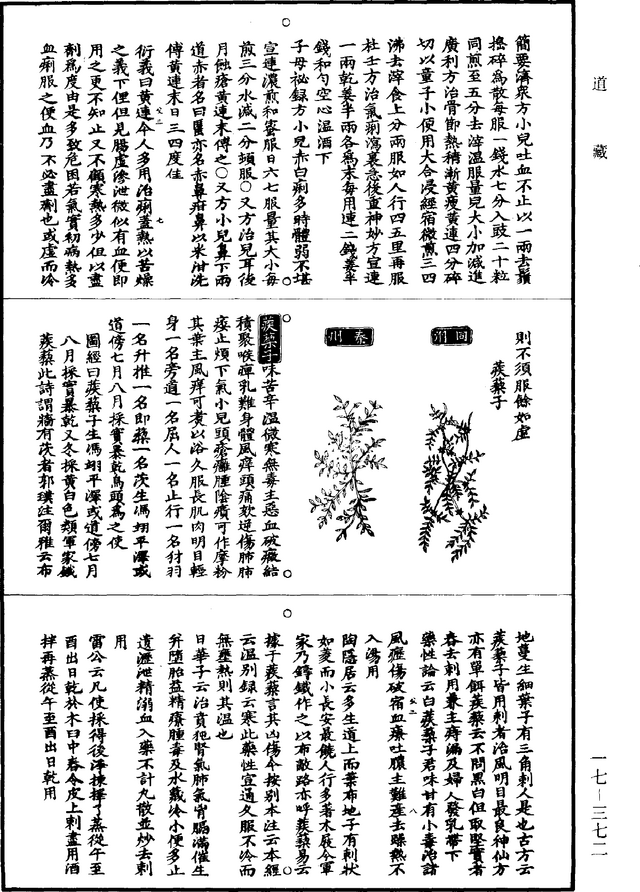 道藏
簡要濟衆方小兒吐血不止以一兩去鬚
搗碎為散每服一錢水七分入豉二十粒
同煎至五分去滓温服量兒大小加減進
廣利方治骨節熱積漸黄瘦黄連四分碎
切以童子小便用大合浸經宿微煎三四
沸去滓食上分兩服如人行四五里再服
杜壬方治氣痢瀉裏急後重神妙方宣連
一兩乾薑半兩各爲末每用連二錢薑半
錢和勻空心温酒下
子母祕録方小兒赤白痢多時體弱不堪
宣連濃煎和蜜服日六七服量其大小每
煎三分水減二分頻服○又方治兒耳後
月蝕瘡黄連末傅之○又方小兒鼻下兩
道赤者名曰䘌亦名赤鼻疳鼻以米泔洗
傅黄連末日三四度佳
衍義曰黄連今人多用治痢蓋熱以苦燥
之義下俚但見腸虛滲泄微似有血便即
用之更不知止又不顧寒熱多少但以盡
劑爲度由是多致危困若氣實初病熱多
血痢服之便止乃不必盡劑也或虛而冷
則不須服餘如虛
蒺藜子
同州
秦州
蒺藜子味苦辛温微寒無毒主惡血破癥結
積聚喉痺乳難身體風痒頭痛欬逆傷肺肺
痿止煩下氣小兒頭瘡癰腫陰㿉可作摩粉
其葉主風痒可煮以浴久服長肌肉明目輕
身一名旁通一名屈人一名止行一名犲羽
一名升推一名即藜一名茨生馮翊平澤或
道傍七月八月採實暴乾烏頭爲之使
圖經曰蒺藜子生馮翊平澤或道傍七月
八月採實暴乾又冬採黄白色類軍家鐵
蒺藜此詩謂牆有茨者郭璞注爾雅云布
地蔓生細葉子有三角刺人是也古方云
蒺藜子皆用刺者治風明目最良神仙方
亦有單餌蒺藜云不問黑白但取堅實者
舂去刺用兼主痔漏及婦人發乳帶下
藥性論云白蒺藜子君味甘有小毒治諸
風癧瘍破宿血療吐膿主難産去躁熱不
入湯用
陶隱居云多生道上而葉布地子有刺狀
如菱而小長安最饒人行多著木屐今軍
家乃鑄鐵作之以布敵路亦呼蒺藜易云
據于蒺藜言其凶傷今按别本注云本經
云温别録云寒此藥性宣通久服不冷而
無壅熱則其温也
日華子云治賁㹠腎氣肺氣胷膈滿催生
并墮胎益精療腫毒及水藏冷小便多止
遺瀝泄精溺血入藥不計丸散並炒去刺
用
雷公云凡使採得後淨揀擇了蒸從午至
酉出日乾於木臼中舂令皮上刺盡用酒
拌再蒸從午至酉出日乾用
一七—三七二